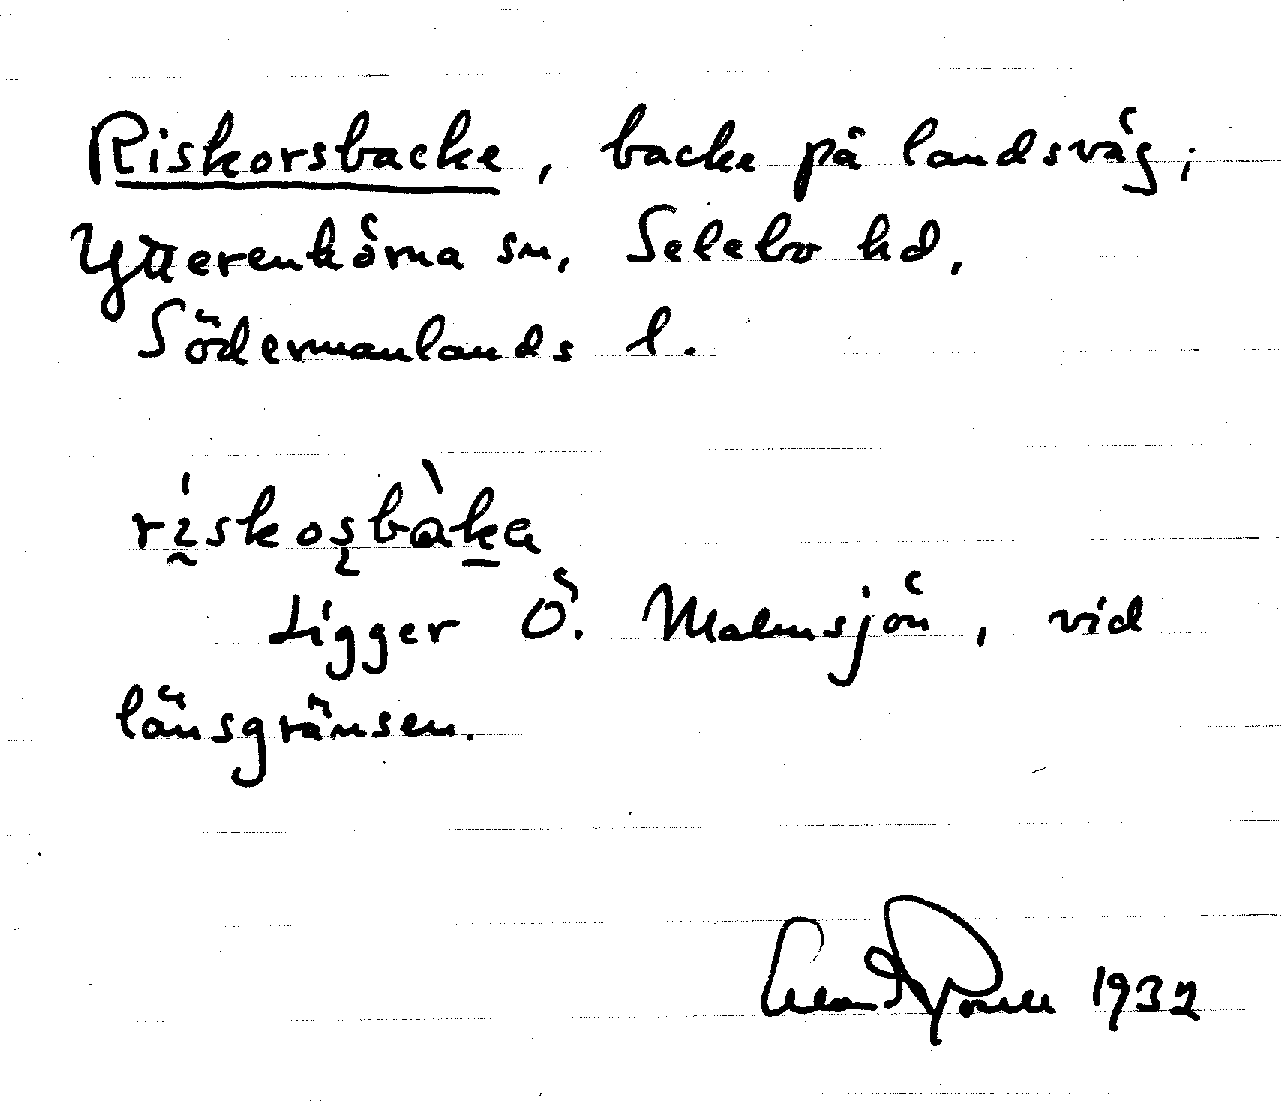 Riskorsbacke, backe på landsväg i
Ytterenhörna sn, Selebo hd,
Södermanlands l.
rískoşbàka
Ligger Ö. Malmsjön, vid
länsgränsen.
1932